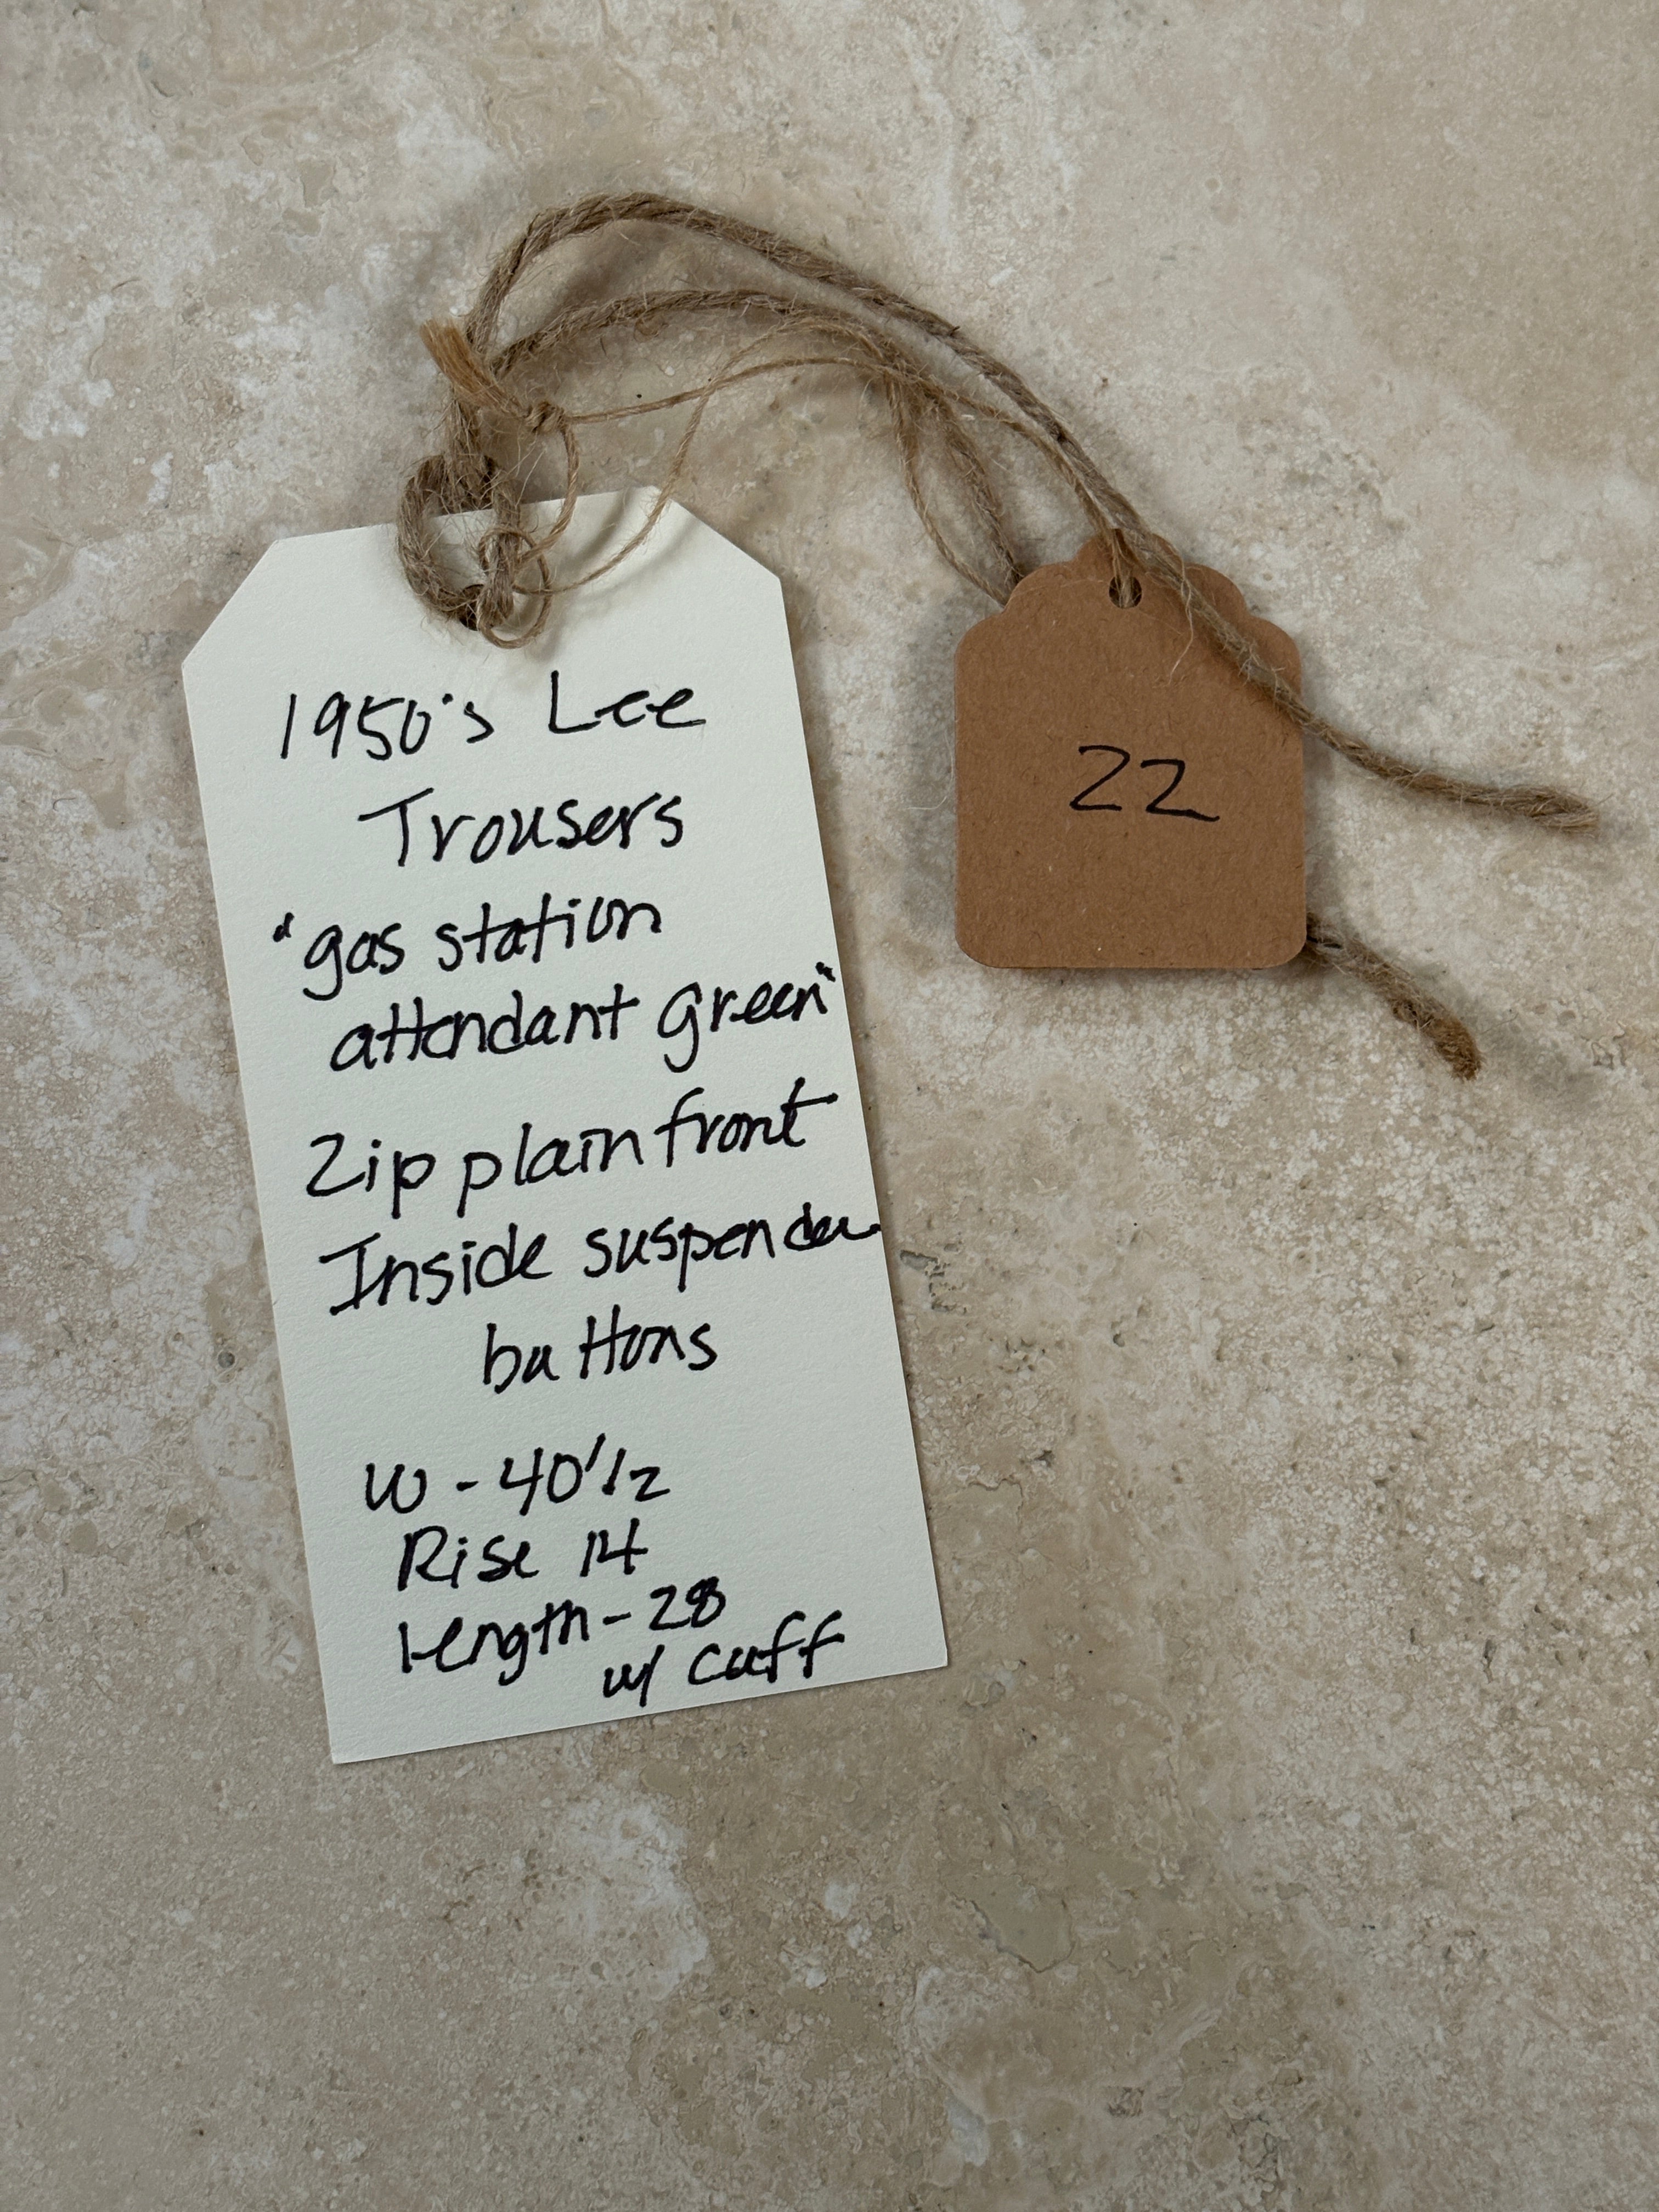 1950's Lee
Trousers
"gas station
attendant green"
Zip plain front
Inside suspender
buttons
W - 40 1/2
Rise 14
Length - 28
w/ cuff
22